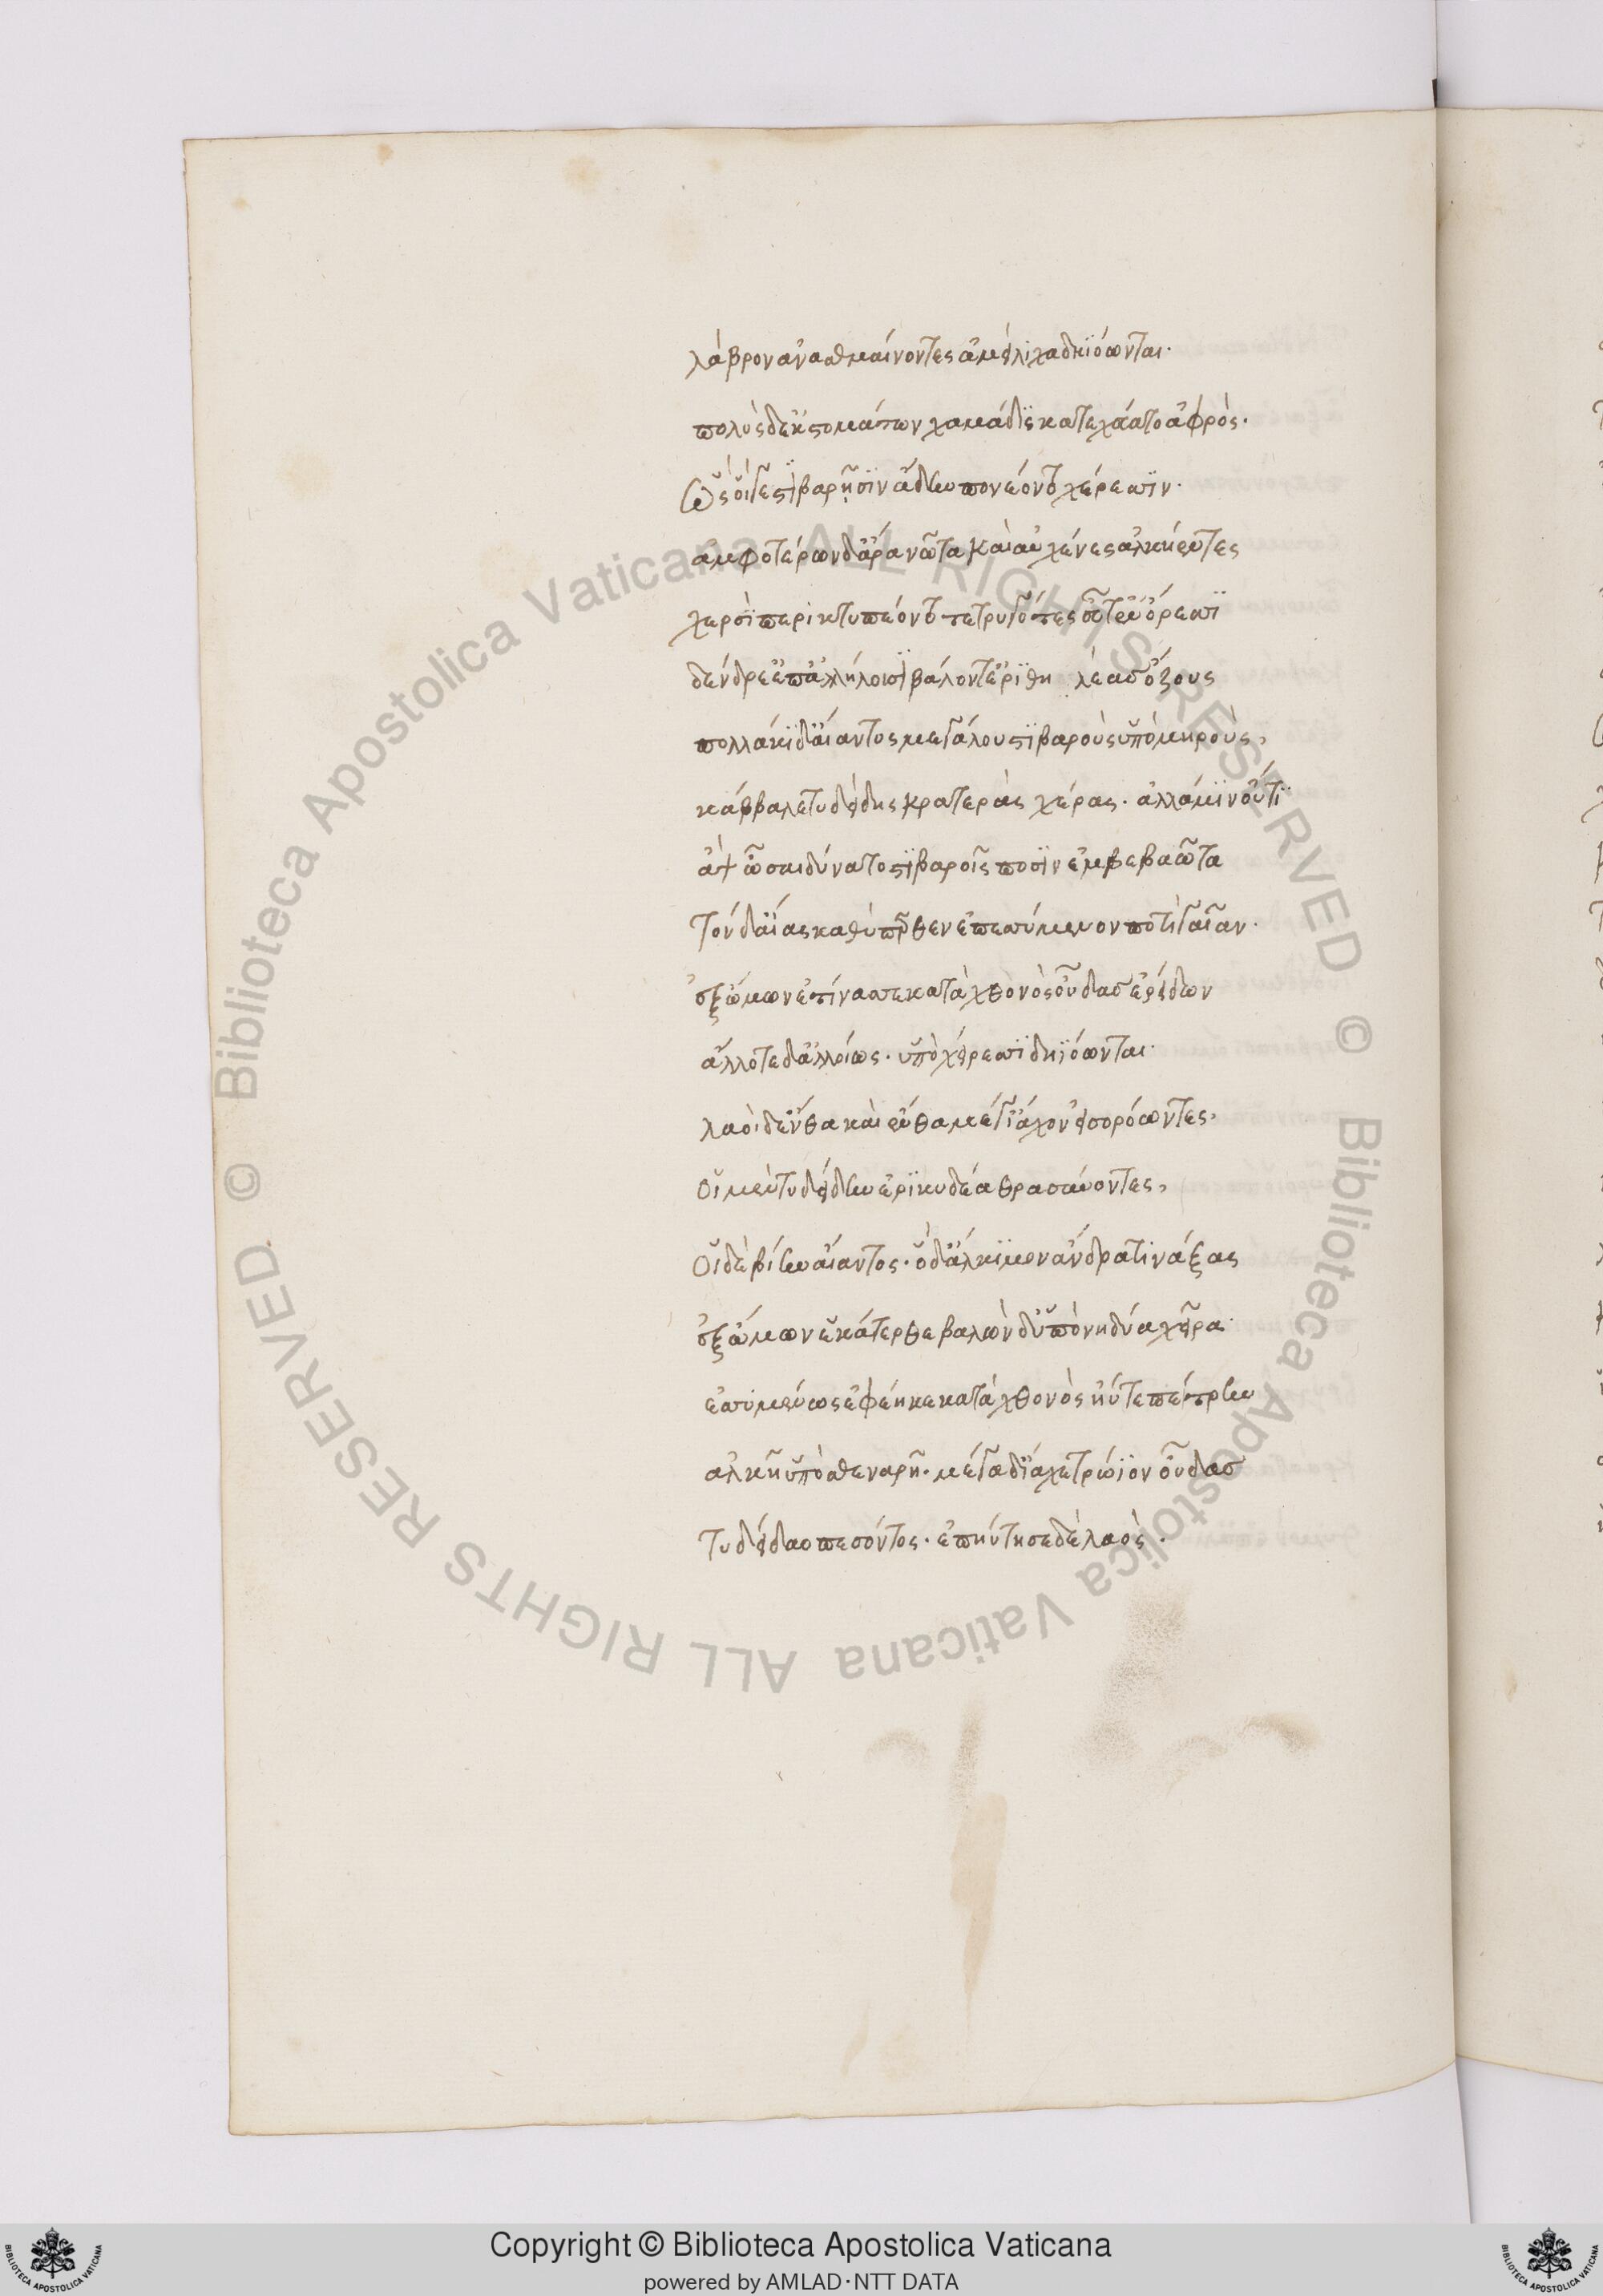 λάβρον ἀναθμαίνοντες ἀμείλιχα δηϊόωνται·
πολὺς δ' ἐκ στομάτων χαμάδις κατεχεύατο ἀφρὸς·
Ὣς οἵ γε στιβαρῇσιν ἄδην πονέοντο χέρεσσιν·
ἀμφοτέρων δ' ἄρα νῶτα καὶ αὐχένες ἀλκήεντες
χερσὶ περικτυπέοντο τετριγότες εὖτ' ἐν ὄρεσσι
δένδρε' ἐπ' ἀλλήλοισι βαλόντ' ἐριθηλέας ὄζους
πολλάκι δ' Αἴαντος μεγάλου στιβαροὺς ὑπὸ μηροὺς,
κάββαλε τυδείδης κρατερὰς χέρας· ἀλλά μιν οὔτι
ἂψ ὦσαι δύνατο στιβαροῖς ποσὶν ἐμβεβαῶτα
Τὸν δ' αἴας καθύπερθεν ἐπεσσύμενον ποτὶ γαῖαν·
ἐξ ὤμων ἐτίναξε κατὰ χθονὸς οὖδας ἐρείδων
ἄλλοτε δ' ἀλλοίως· ὑπὸ χείρεσσι δηϊόωνται·
λαοὶ δ' ἔνθα καὶ ἔνθα μέγ' ἴαχον εἰσορόωντες,
οἱ μὲν τυδείδην ἐρικυδέα θρασύνοντες,
οἱ δὲ βίην αἴαντος· ὁ δ' ἄλκιμον ἄνδρα τινάξας
ἐξ ὤμων ἑκάτερθε βαλὼν δ' ὑπὸ νηδύα χεῖρα
ἐσσυμένως ἐφέηκε κατὰ χθονὸς ἠύτε πέτρην
ἀλκῆ ὑπὸ σθεναρῆ· μέγα δ' ἴαχε τρώϊον οὖδας
Τυδείδαο πεσόντος· ἐπηύτησε δὲ λαὸς·
Copyright © Biblioteca Apostolica Vaticana
powered by AMLAD·NTT DATA